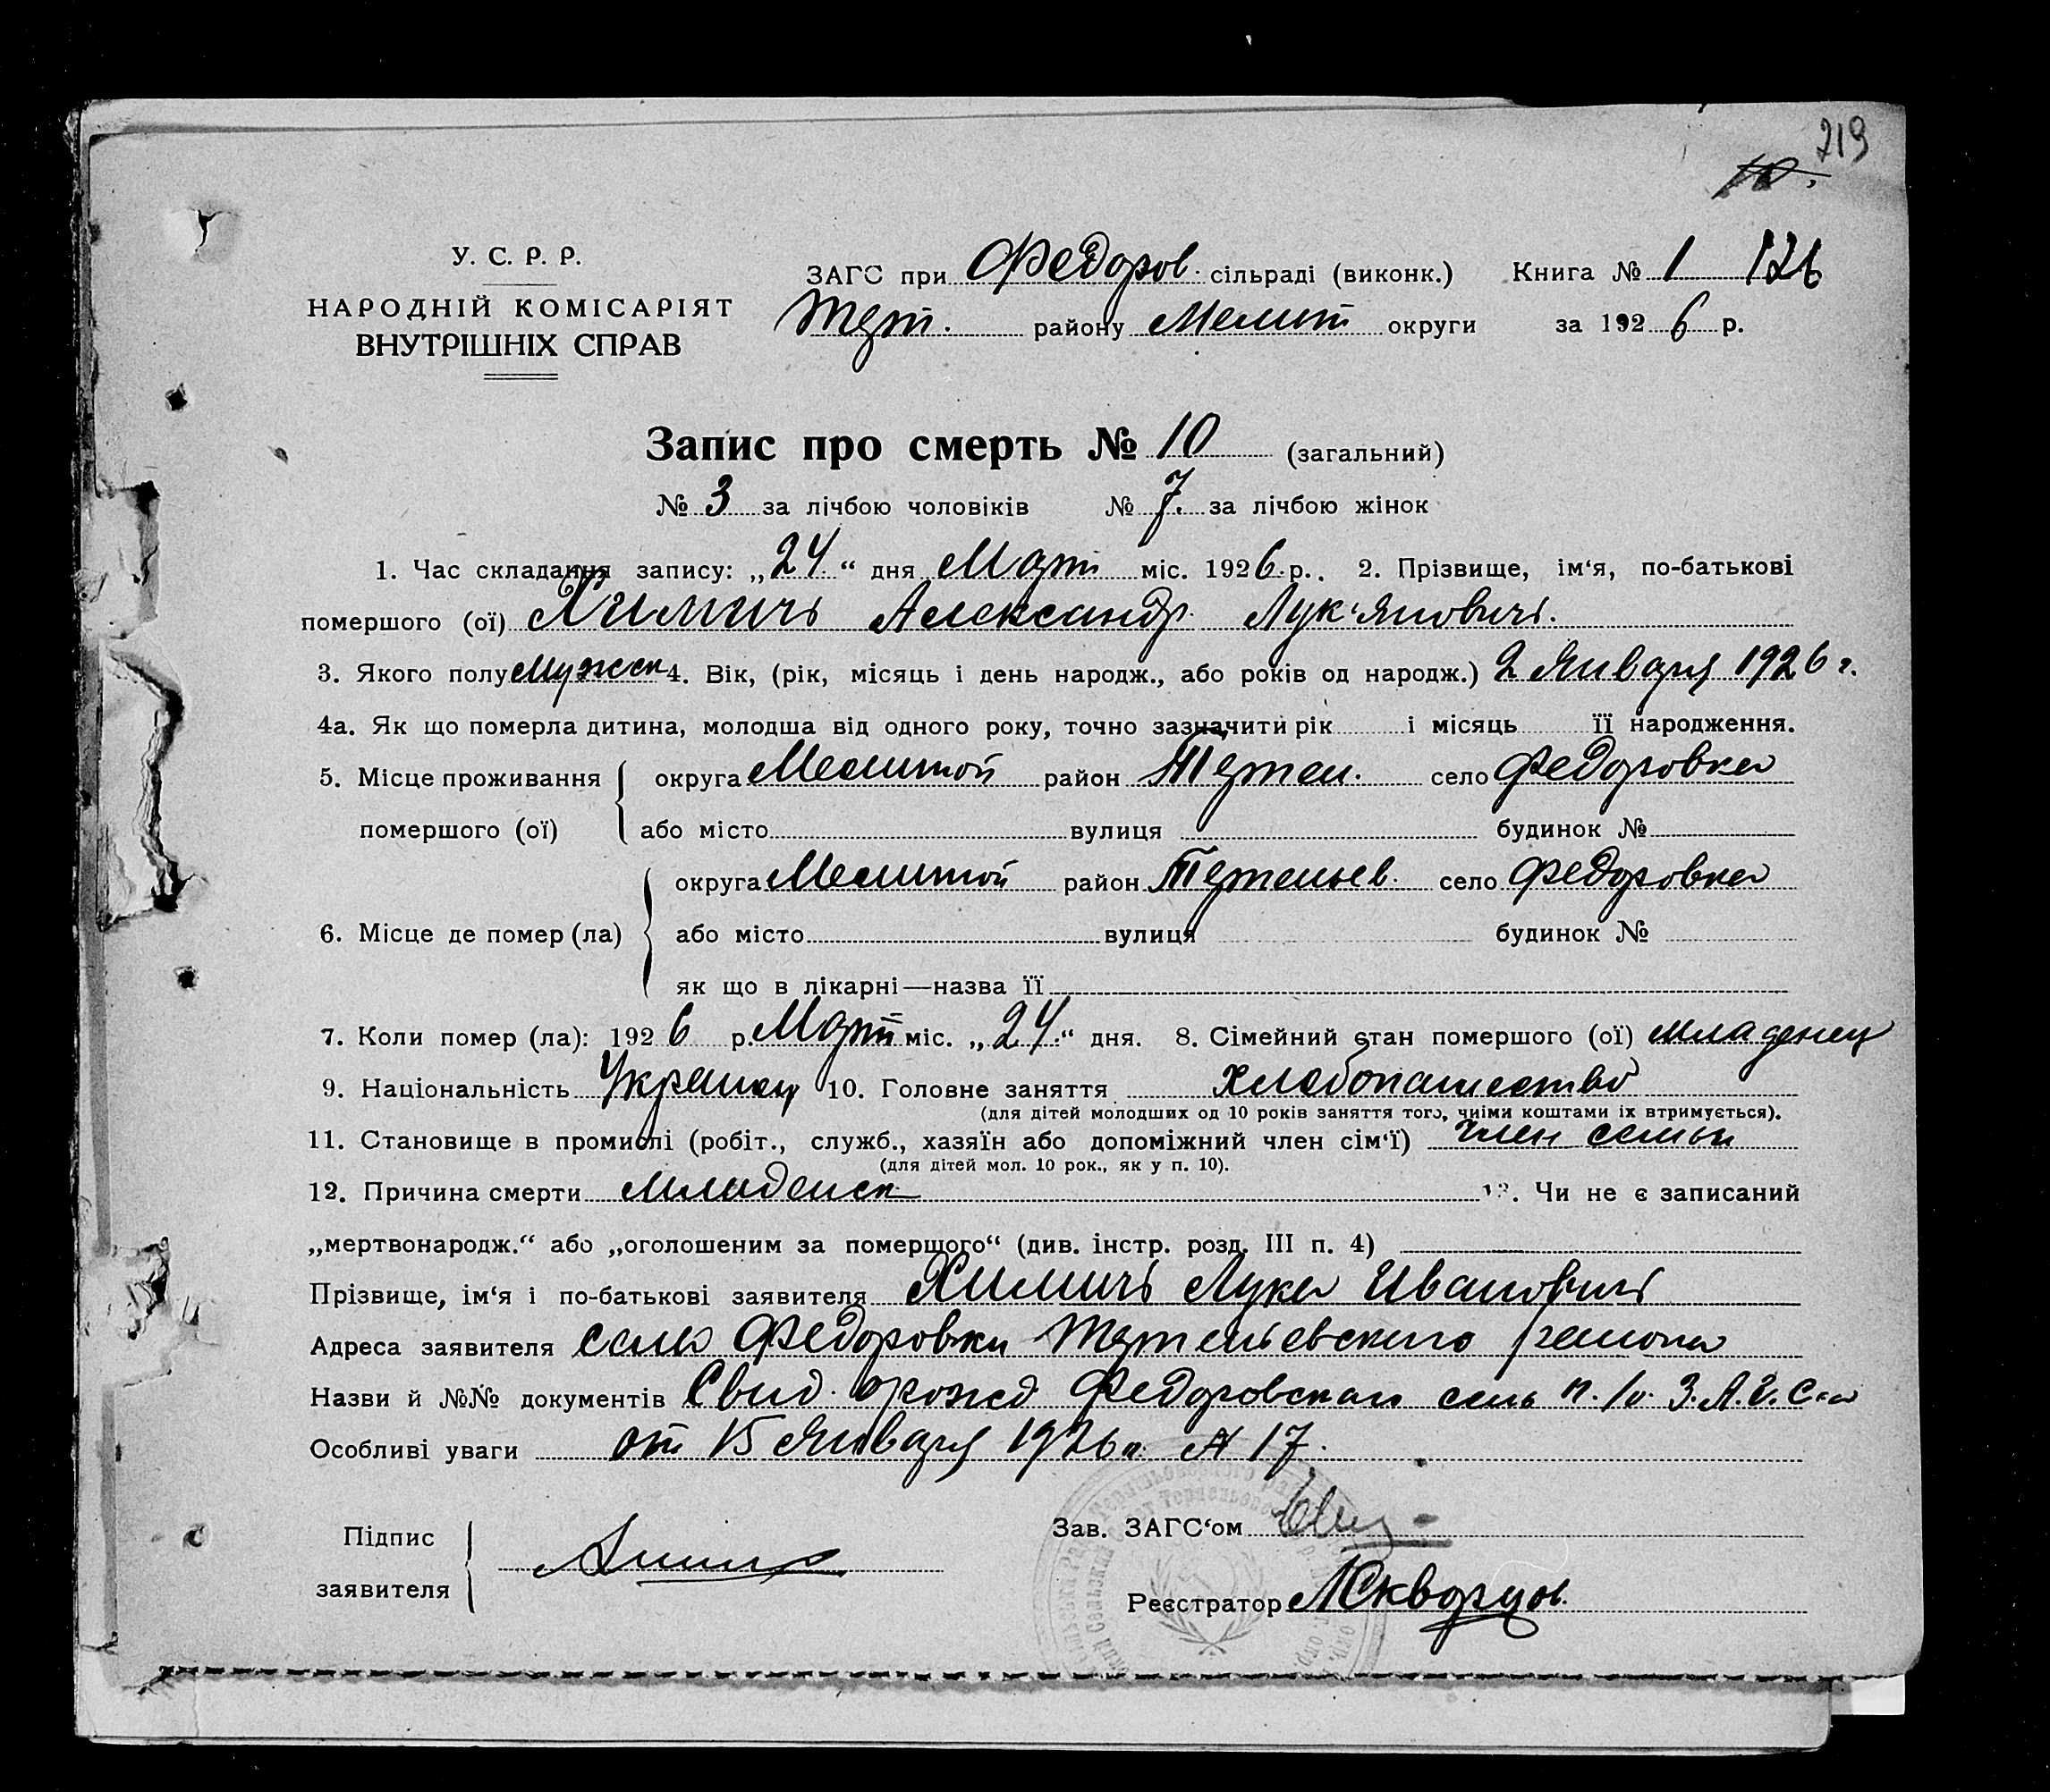 219
10.
У. С. Р. Р.
НАРОДНІЙ КОМІСАРІЯТ
ВНУТРІШНІХ СПРАВ
ЗАГС при Федоров. сільраді (виконк.) Книга № 1 126
Терп. району Мелит округи за 1926 р.
Запис про смерть № 10 (загальний)
№ 3 за лічбою чоловіків № 7. за лічбою жінок
1. Час складання запису: „24“ дня Март міс. 1926 р.. 2. Прізвище, ім‘я, по-батькові
помершого (ої) Химичь Александр Лук'яновичь.
3. Якого полу мужск 4. Вік, (рік, місяць і день народж., або років од народж.) 2 Января 1926 г.
4а. Як що померла дитина, молодша від одного року, точно зазначити рік і місяць її народження.
5. Місце проживання помершого (ої) округа Мелитой район Терпен. село Федоровка
або місто вулиця будинок №
6. Місце де помер (ла) округа Мелитой район Терпеньев. село Федоровка
або місто вулиця будинок №
як що в лікарні—назва її
7. Коли помер (ла): 1926 р. Март міс. „24“ дня. 8. Сімейний стан помершого (ої) младенец
9. Національність Украинец 10. Головне заняття хлебопашество
(для дітей молодших од 10 років заняття того, чиїми коштами їх втримується).
11. Становище в промислі (робіт., служб., хазяїн або допоміжний член сім‘ї) член семьи
(для дітей мол. 10 рок., як у п. 10).
12. Причина смерти младенск 13. Чи не є записаний
„мертвонародж.“ або „оголошеним за помершого“ (див. інстр. розд. III п. 4)
Прізвище, ім‘я і по-батькові заявителя Химичь Лука Ивановичь
Адреса заявителя село Федоровки Терпеньевского района
Назви й №№ документів Свид. о рожд Федоровскаго сель З.А.Г.С-а
Особливі уваги от 15 Января 1926 г. № 17.
Підпис заявителя
Зав. ЗАГС‘ом
Реєстратор Скворцов.